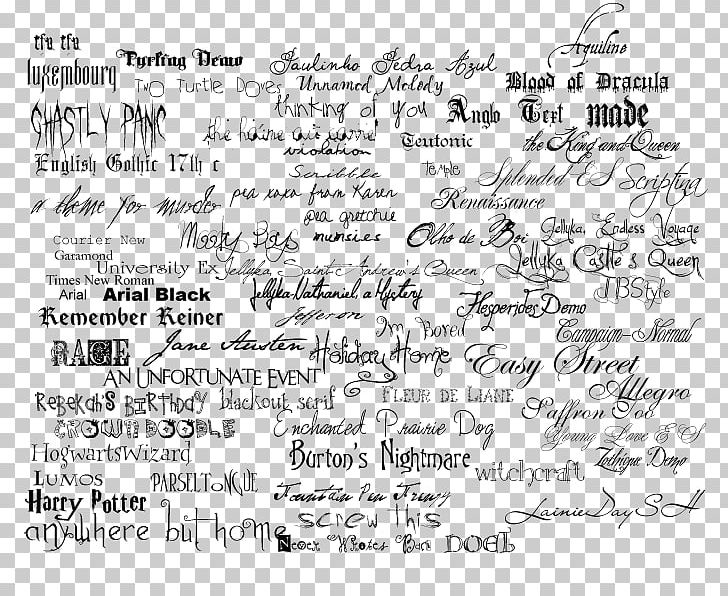 Aquiline
tfu tfu
Turling Demo
Paulinho Pedra Azul
luxembourg
Two Turtle Doves
Unnamed Melody
Blood of Dracula
thinking of you
Anglo Text
made
GHASTLY PANIC
violation
Teutonic
the King and Queen
English Gothic 17th c
Scribble
Temple
Splendid ES Scripting
pea xoxo from Karen
Renaissance
a theme for murder
pea gretchie
munsies
Misty Days
Olho de Boi
Jellyka, Endless Voyage
Courier New
Garamond
University Ex
Jellyka, Saint-Andrew's Queen
Jellyka Castle's Queen
Times New Roman
Arial
Arial Black
Jellyka-Nathaniel, a Mystery
JBStyle
Hesperides Demo
Remember Reiner
Jefferson
I'm Bored
Campaign-Normal
RAGE
Jane Austen
Holiday Home
Easy Street
AN UNFORTUNATE EVENT
Allegro
Rebekah's Birthday
blackout serif
FLEUR DE LIANE
Saffron Too
CROWN DOODLE
Enchanted Prairie Dog
Young Love ES
HogwartsWizard
Burton's Nightmare
witchcraft
Zothique Demo
LUMOS
PARSELTONGUE
Harry Potter
Fountain Pen Frenzy
LainieDaySH
anywhere but home
screw this
Never Writes Back
DOEL